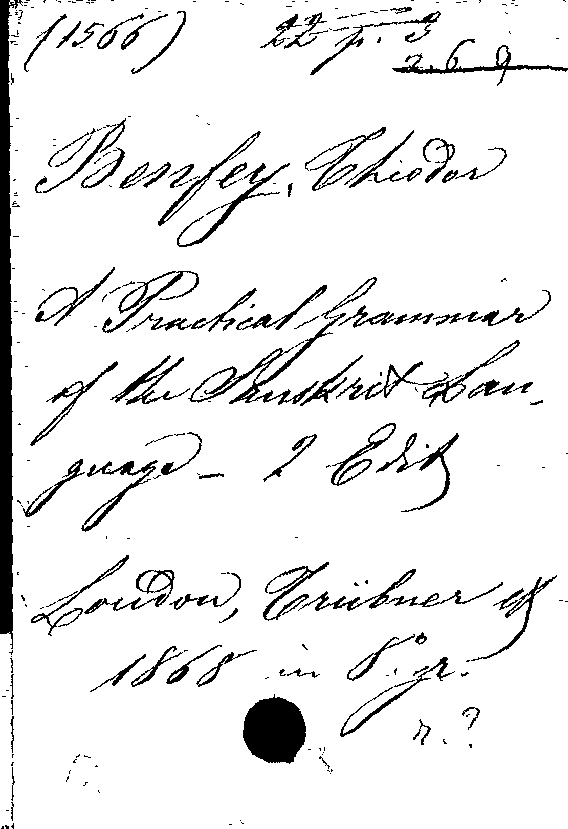 (1566) 22 p. 3
2. 6. 9
Benfey, Theodor
A Practical Grammar
of the Sanskrit Lan-
guage - 2 Edit
London, Trübner
1868 in 8.° gr.
r. ?